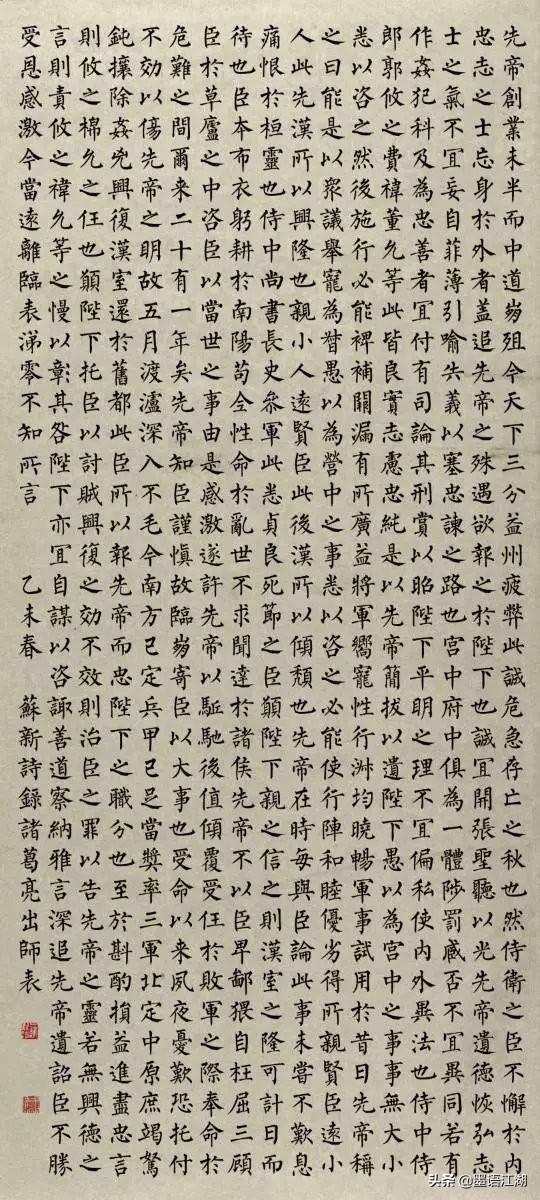 先帝創業未半而中道崩殂今天下三分益州疲弊此誠危急存亡之秋也然侍衛之臣不懈於内
忠志之士忘身於外者蓋追先帝之殊遇欲報之於陛下也誠宜開張聖聽以光先帝遺德恢弘志
士之氣不宜妄自菲薄引喻失義以塞忠諫之路也宮中府中俱為一體陟罰臧否不宜異同若有
作姦犯科及為忠善者宜付有司論其刑賞以昭陛下平明之理不宜偏私使内外異法也侍中侍
郎郭攸之費禕董允等此皆良實志慮忠純是以先帝簡拔以遺陛下愚以為宮中之事事無大小
悉以咨之然後施行必能裨補闕漏有所廣益將軍嚮寵性行淑均曉暢軍事試用於昔日先帝稱
之曰能是以眾議舉寵為督愚以為營中之事悉以咨之必能使行陣和睦優劣得所親賢臣遠小
人此先漢所以興隆也親小人遠賢臣此後漢所以傾頹也先帝在時每與臣論此事未嘗不歎息
痛恨於桓靈也侍中尚書長史參軍此悉貞良死節之臣願陛下親之信之則漢室之隆可計日而
待也臣本布衣躬耕於南陽苟全性命於亂世不求聞達於諸侯先帝不以臣卑鄙猥自枉屈三顧
臣於草廬之中咨臣以當世之事由是感激遂許先帝以駈馳後值傾覆受任於敗軍之際奉命於
危難之間爾来二十有一年矣先帝知臣謹慎故臨崩寄臣以大事也受命以来夙夜憂歎恐托付
不効以傷先帝之明故五月渡瀘深入不毛今南方已定兵甲已足當獎率三軍北定中原庶竭駑
鈍攘除姦兇興復漢室還於舊都此臣所以報先帝而忠陛下之職分也至於斟酌損益進盡忠言
則攸之禕允之任也願陛下托臣以討賊興復之効不效則治臣之罪以告先帝之靈若無興德之
言則責攸之禕允等之慢以彰其咎陛下亦宜自謀以咨諏善道察納雅言深追先帝遺詔臣不勝
受恩感激今當遠離臨表涕零不知所言 乙未春 蘇新詩錄諸葛亮出師表
头条 @墨语江湖